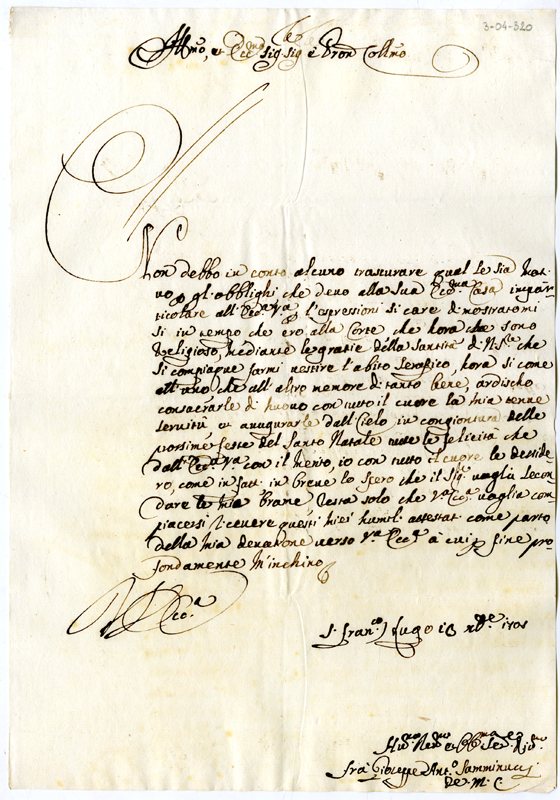 3-04-320
Ill.mo, et Ecc.mo Sig. Sig. e Pron Coll.mo
Non debbo in conto alcuno trascurare qual le sia Moti
vo p gl'obblighi che devo alla Sua Ecc.ma Casa in par
ticolare all'Ecc.a V.a l'espressioni si care di mostratomi
si in tempo che ero alla Corte che hora che sono
Religioso, mediante le gratie della Santità di N. S.re che
si compiaque farmi vestire l'abito Serafico, hora si come
all'uno che all'altro memore di tanto bene, ardisco
consacrarle di nuovo con tutto il cuore la mia tenue
servitù et augurarle dall'Cielo in congiontura delle
porsime feste del Santo Natale tutte le felicità che
dall'Ecc.a V.a con il Merito, io con tutto il cuore le deside
ro, come in fatti in breve lo spero che il Sig.re voglia secon
dare le mia brame, resta solo che V.a Ecc.a voglia com
piacessi ricevere questi miei humil. attestati come parto
della mia devatione verso V.a Ecc.a à cui p fine pro
fondamente m'inchino
V. Ecc.a
S. Fran.co Lugo 18 Xbre
Fra Gioseppe Ant.o Samminucci
de M. C.